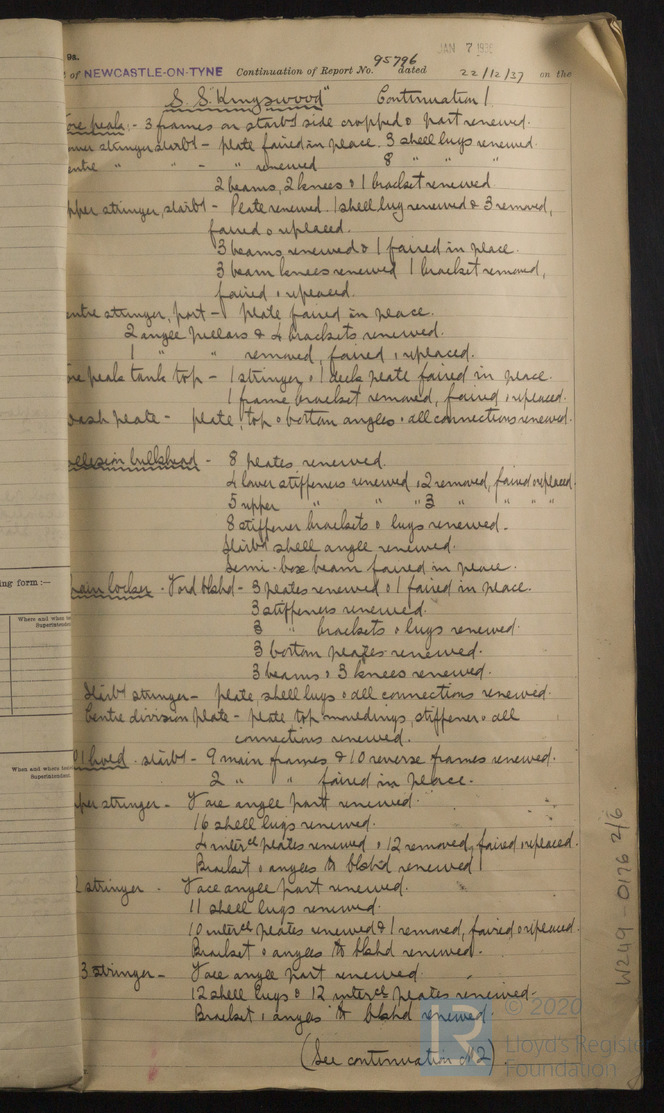 JAN 7 1938
9a.
of NEWCASTLE-ON-TYNE Continuation of Report No. 95796 dated 22/12/37 on the
S.S. "Kingswood" Continuation 1.
ore peak :- 3 frames on starbd side cropped & part renewed.
ower stringer starbd - plate faired in place. 3 shell lugs renewed.
entre " " - " renewed 8 " " "
2 beams, 2 knees & 1 bracket renewed.
pper stringer, starbd - Plate renewed. 1 shell lug renewed & 3 removed,
faired & replaced.
3 beams renewed & 1 faired in place.
3 beam knees renewed 1 bracket removed,
faired & replaced.
entre stringer, port - plate faired in place.
2 angle pillars & 4 brackets renewed.
1 " " removed, faired & replaced.
ore peak tank top - 1 stringer & 1 deck plate faired in place.
1 frame bracket removed, faired & replaced.
wash plate - plate, top & bottom angles & all connections renewed.
ollision bulkhead - 8 plates renewed.
4 lower stiffeners renewed & 2 removed, faired & replaced.
5 upper " " " 3 " " " "
8 stiffener brackets & lugs renewed.
Starbd shell angle renewed.
Semi-box beam faired in place.
hain locker - Ford blkhd - 3 plates renewed & 1 faired in place.
3 stiffeners renewed.
3 " brackets & lugs renewed.
3 bottom plates renewed.
3 beams & 3 knees renewed.
Starbd stringer - plate, shell lugs & all connections renewed.
Centre division plate - plate top mouldings, stiffener & all
connections renewed.
o 1 hold. starbd - 9 main frames & 10 reverse frames renewed.
2 " " faired in place.
pper stringer - Face angle part renewed.
16 shell lugs renewed.
4 intercl plates renewed & 12 removed, faired & replaced.
Bracket & angles to blkhd renewed.
2 stringer - Face angle part renewed.
11 shell lugs renewed.
10 intercl plates renewed & 1 removed, faired & replaced.
Bracket & angles to blkhd renewed.
3 stringer - Face angle part renewed.
12 shell lugs & 12 intercl plates renewed.
Bracket & angles to blkhd renewed.
(See continuation No 2)
ing form :—
Where and when
Superintenden
When and where
Superintendent
W249-0176 2/6
LR
© 2020
Lloyd's Register
Foundation